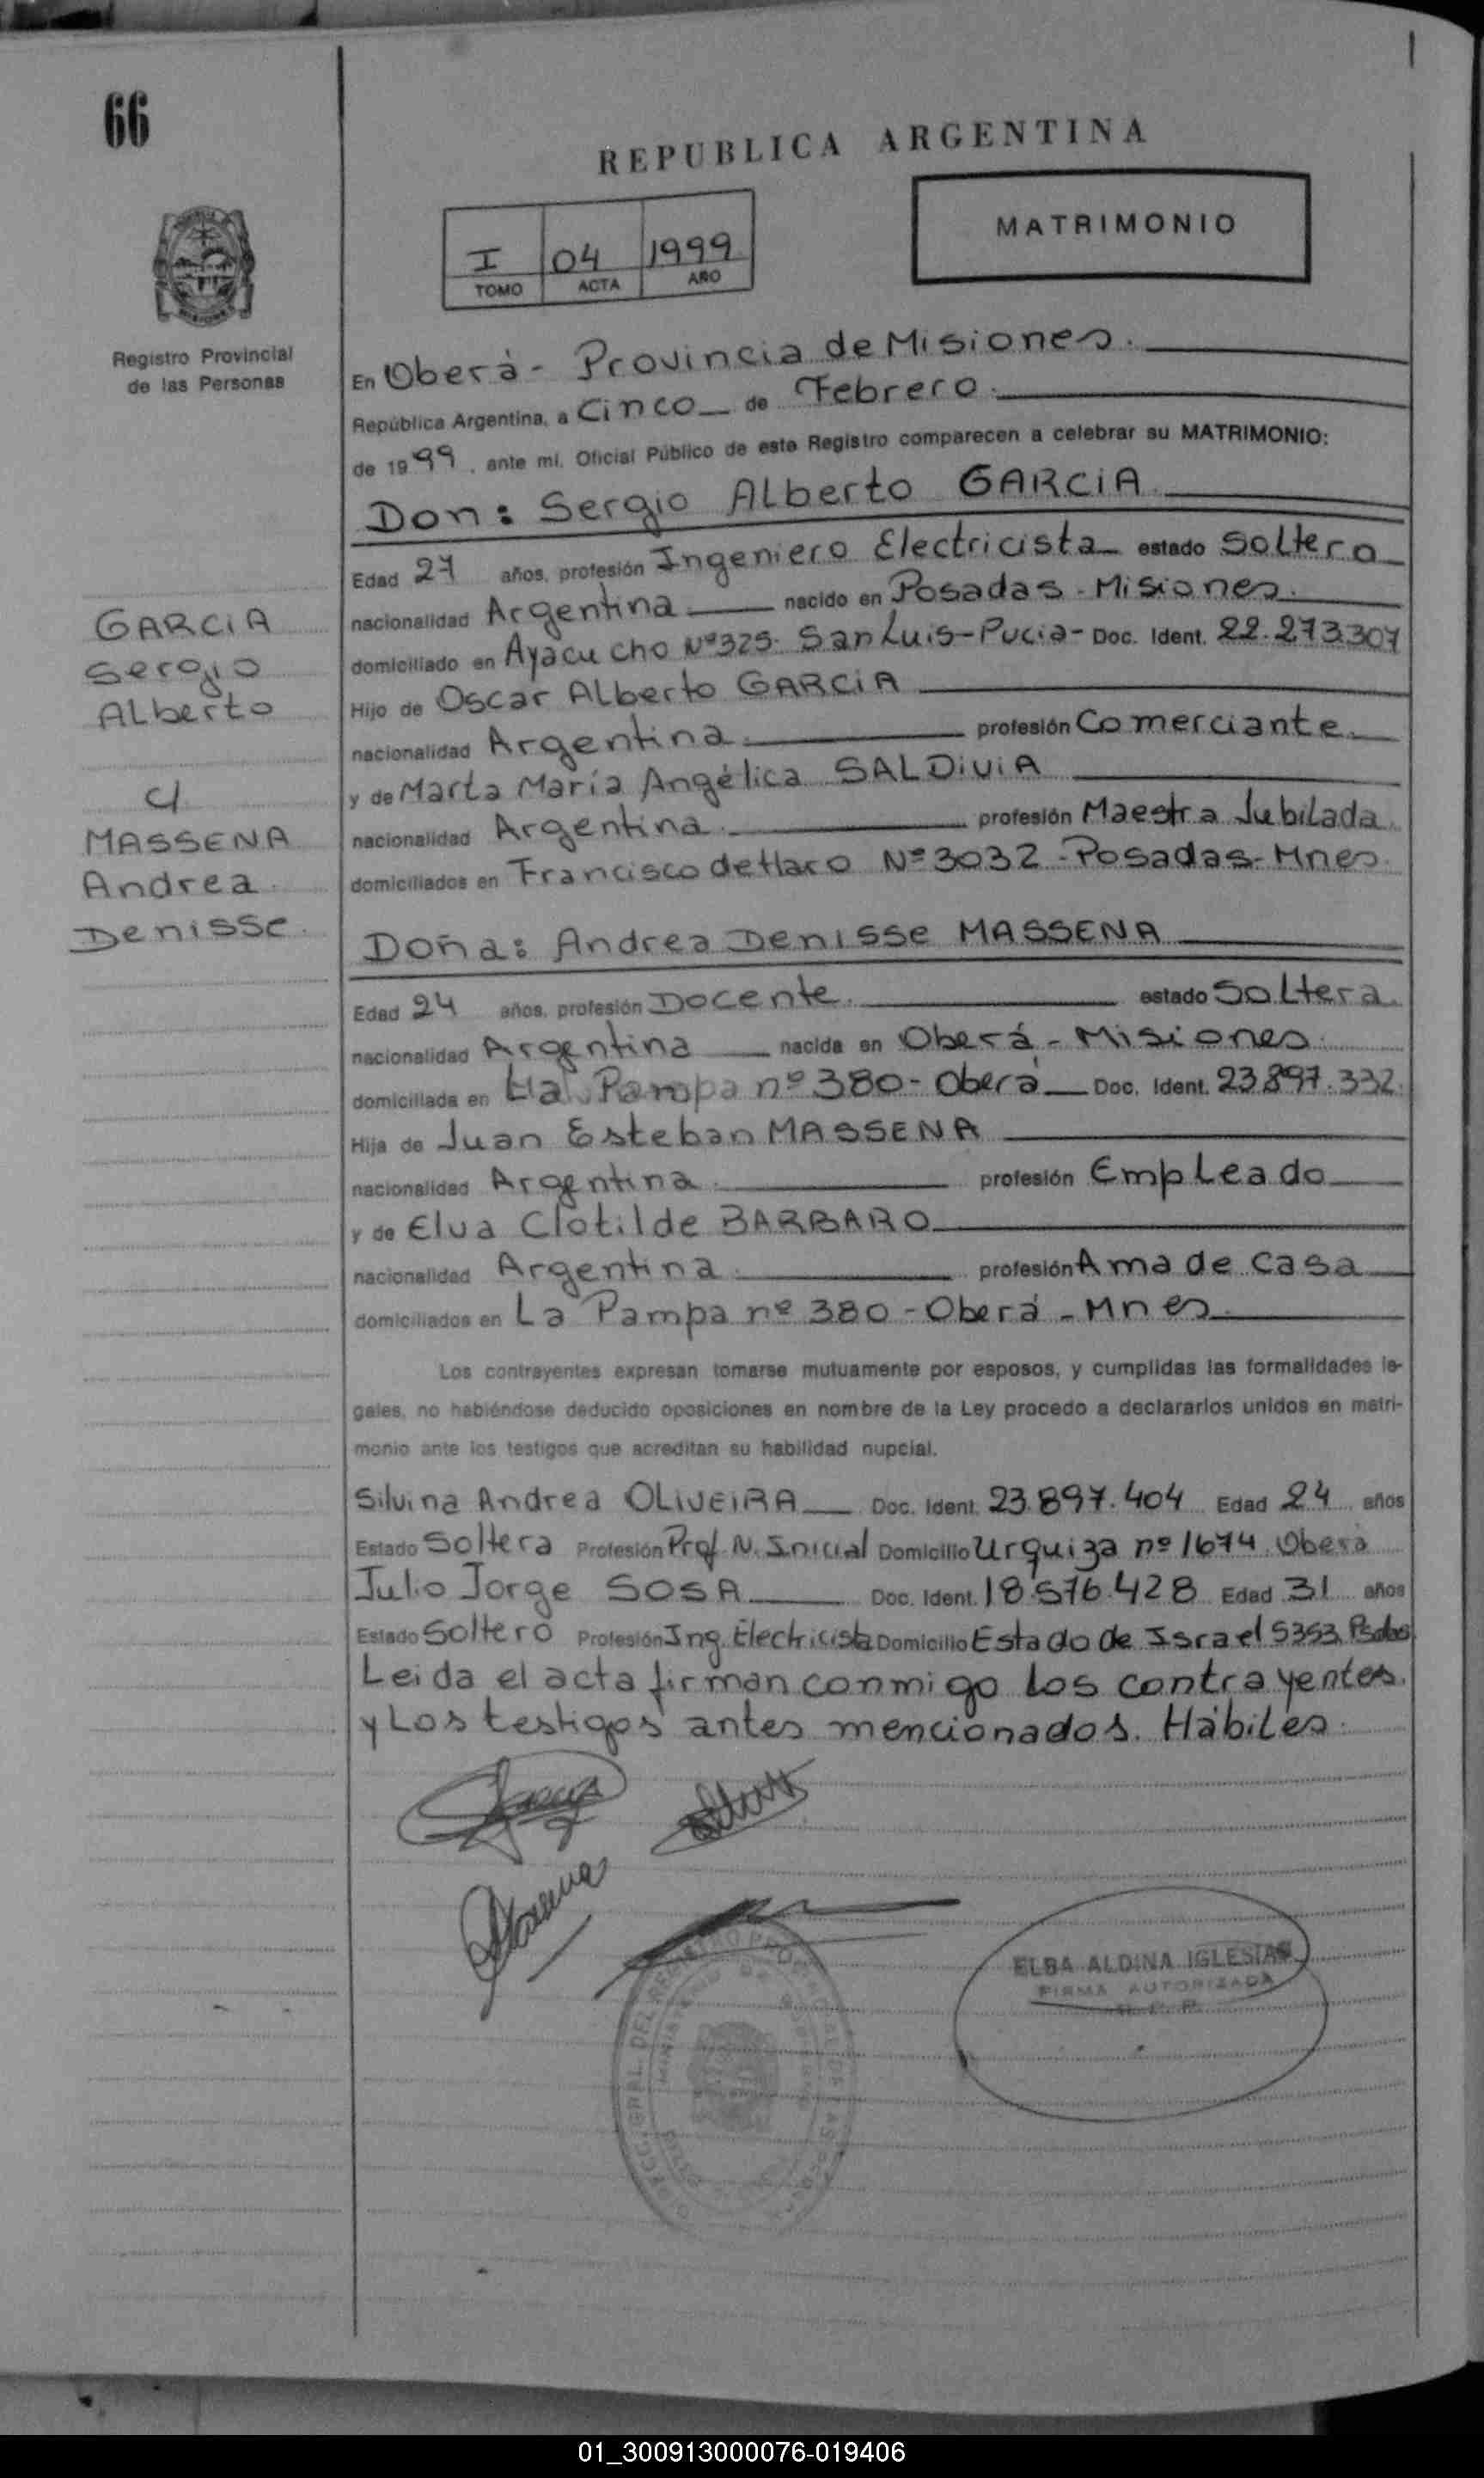 66
REPUBLICA ARGENTINA
I 04 1999
TOMO ACTA AÑO
MATRIMONIO
Registro Provincial
de las Personas
En Oberá - Provincia de Misiones.
República Argentina, a Cinco de Febrero.
de 1999, ante mi, Oficial Público de este Registro comparecen a celebrar su MATRIMONIO:
Don: Sergio Alberto GARCIA
Edad 27 años, profesión Ingeniero Electricista estado Soltero
nacionalidad Argentina nacido en Posadas - Misiones.
domiciliado en Ayacucho Nº 325. San Luis-Pucia- Doc. Ident. 22.273.307
Hijo de Oscar Alberto GARCIA
nacionalidad Argentina. profesión Comerciante.
y de Marta María Angélica SALDIVIA
nacionalidad Argentina. profesión Maestra Jubilada.
domiciliados en Francisco de Haro Nº 3032 - Posadas - Mnes.
GARCIA
Sergio
Alberto
c/
MASSENA
Andrea
Denisse.
Doña: Andrea Denisse MASSENA
Edad 24 años, profesión Docente. estado Soltera.
nacionalidad Argentina nacida en Oberá - Misiones.
domiciliada en La Pampa nº 380 - Oberá Doc. Ident. 23.897.332.
Hija de Juan Esteban MASSENA
nacionalidad Argentina. profesión Empleado
y de Elva Clotilde BARBARO
nacionalidad Argentina. profesión Ama de casa
domiciliados en La Pampa nº 380 - Oberá - Mnes.
Los contrayentes expresan tomarse mutuamente por esposos, y cumplidas las formalidades le-
gales, no habiéndose deducido oposiciones en nombre de la Ley procedo a declararlos unidos en matri-
monio ante los testigos que acreditan su habilidad nupcial.
Silvina Andrea OLIVEIRA Doc. Ident. 23.897.404 Edad 24 años
Estado Soltera Profesión Prof. N. Inicial Domicilio Urquiza nº 1674. Oberá
Julio Jorge SOSA Doc. Ident. 18.576.428 Edad 31 años
Estado Soltero Profesión Ing. Electricista Domicilio Estado de Israel 5353. Psdas
Leida el acta firman conmigo los contrayentes
y Los testigos antes mencionados. Hábiles.
ELBA ALDINA IGLESIAS
FIRMA AUTORIZADA
R. P. P.
01_300913000076-019406